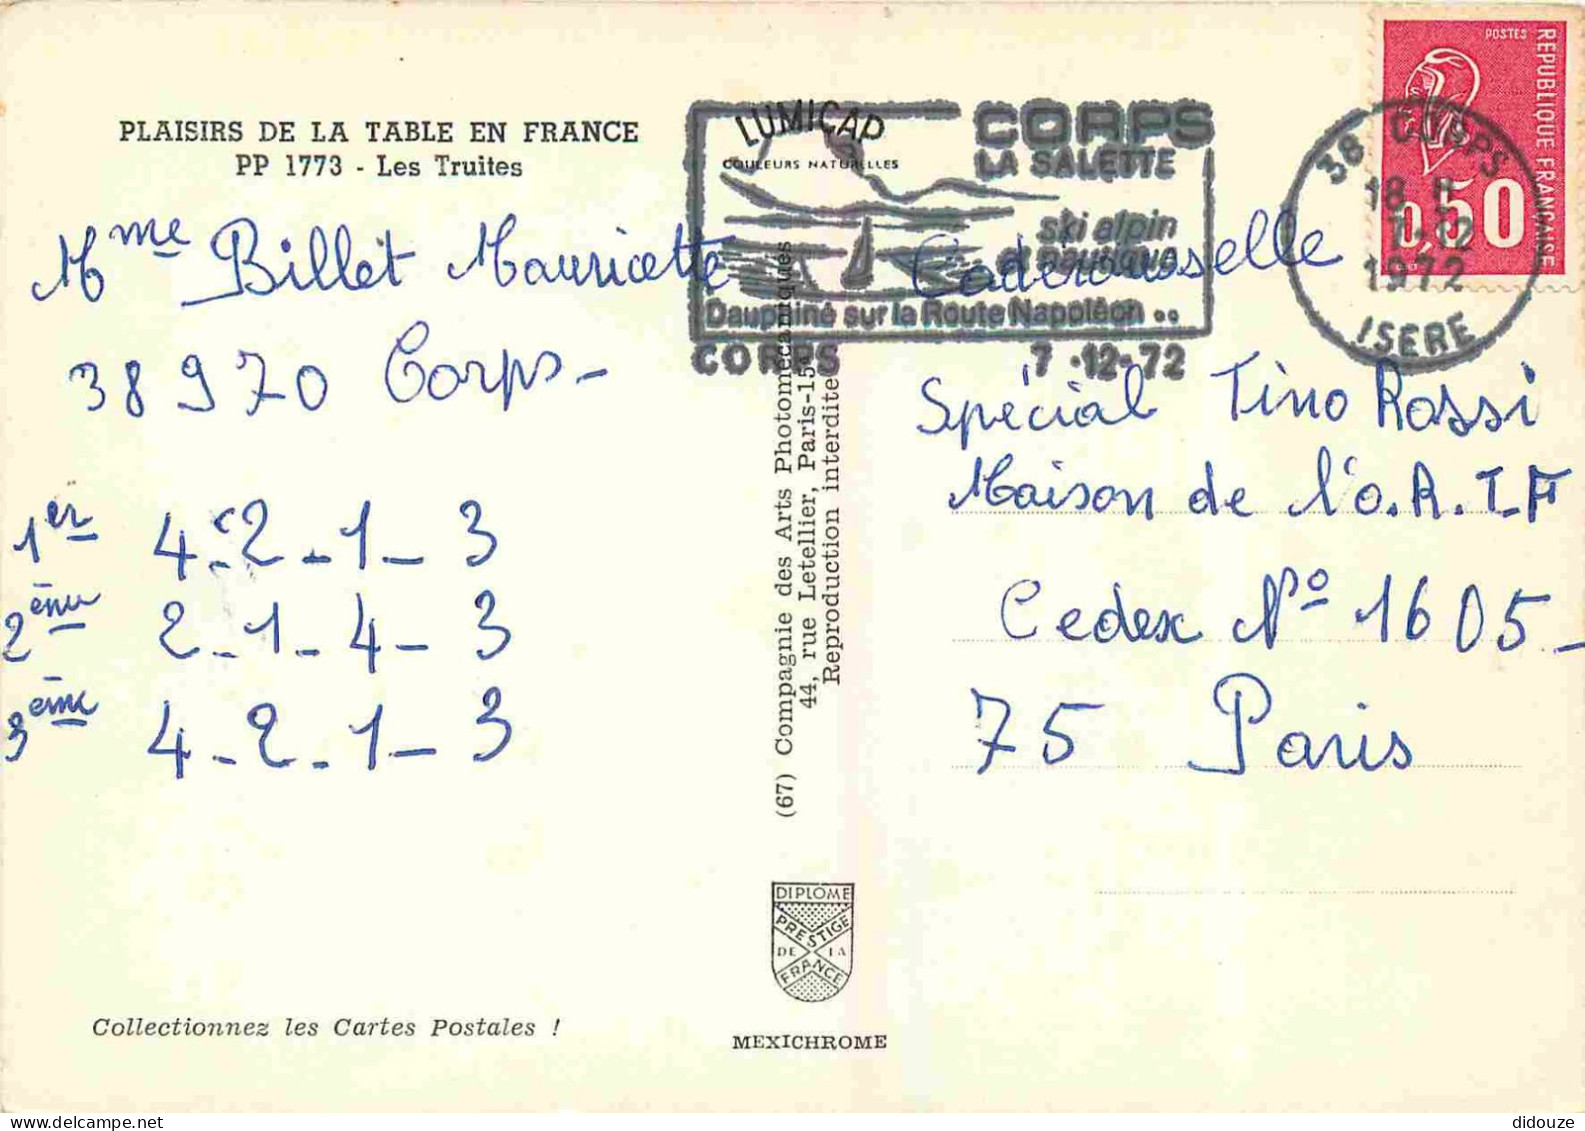 PLAISIRS DE LA TABLE EN FRANCE
PP 1773 - Les Truites
Mme Billet Mauricette
38970 Corps -
1er 4 - 2 - 1 - 3
2ème 2 - 1 - 4 - 3
3ème 4 - 2 - 1 - 3
Collectionnez les Cartes Postales !
LUMICAP
COULEURS NATURELLES
CORPS
LA SALETTE
ski alpin
et nautique
Dauphiné sur la Route Napoléon ..
CORPS 7 -12-72
(67) Compagnie des Arts Photomécaniques
44, rue Letellier, Paris-15e
Reproduction interdite
DIPLOME
PRESTIGE
DE LA
FRANCE
MEXICHROME
POSTES
REPUBLIQUE FRANÇAISE
0,50
38 CORPS
18 H
7-12
1972
ISERE
Caderousselle
Spécial Tino Rossi
Maison de l'O.R.T.F
Cedex N° 1605 -
75 Paris
didouze